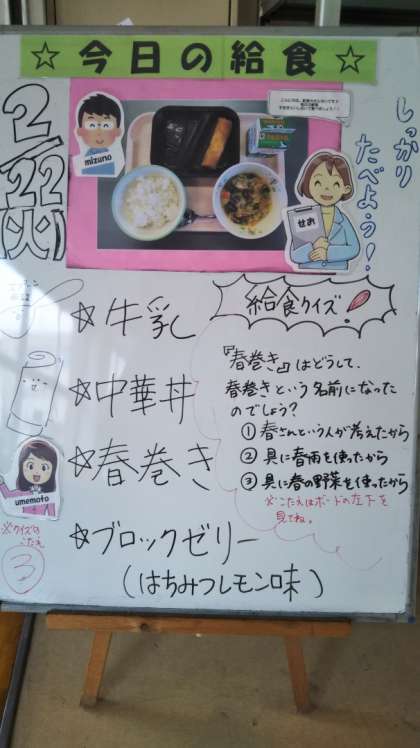 ☆今日の給食☆
2/22(火)
mizuno
せお
しっかり
たべよう!
☆牛乳
☆中華丼
☆春巻き
☆ブロックゼリー
(はちみつレモン味)
給食クイズ!
『春巻き』はどうして、
春巻きという名前になった
のでしょう?
①春さんという人が考えたから
②具に春雨を使ったから
③具に春の野菜を使ったから
※こたえはボードの左下を
見てね。
umemoto
※クイズの
こたえ
③